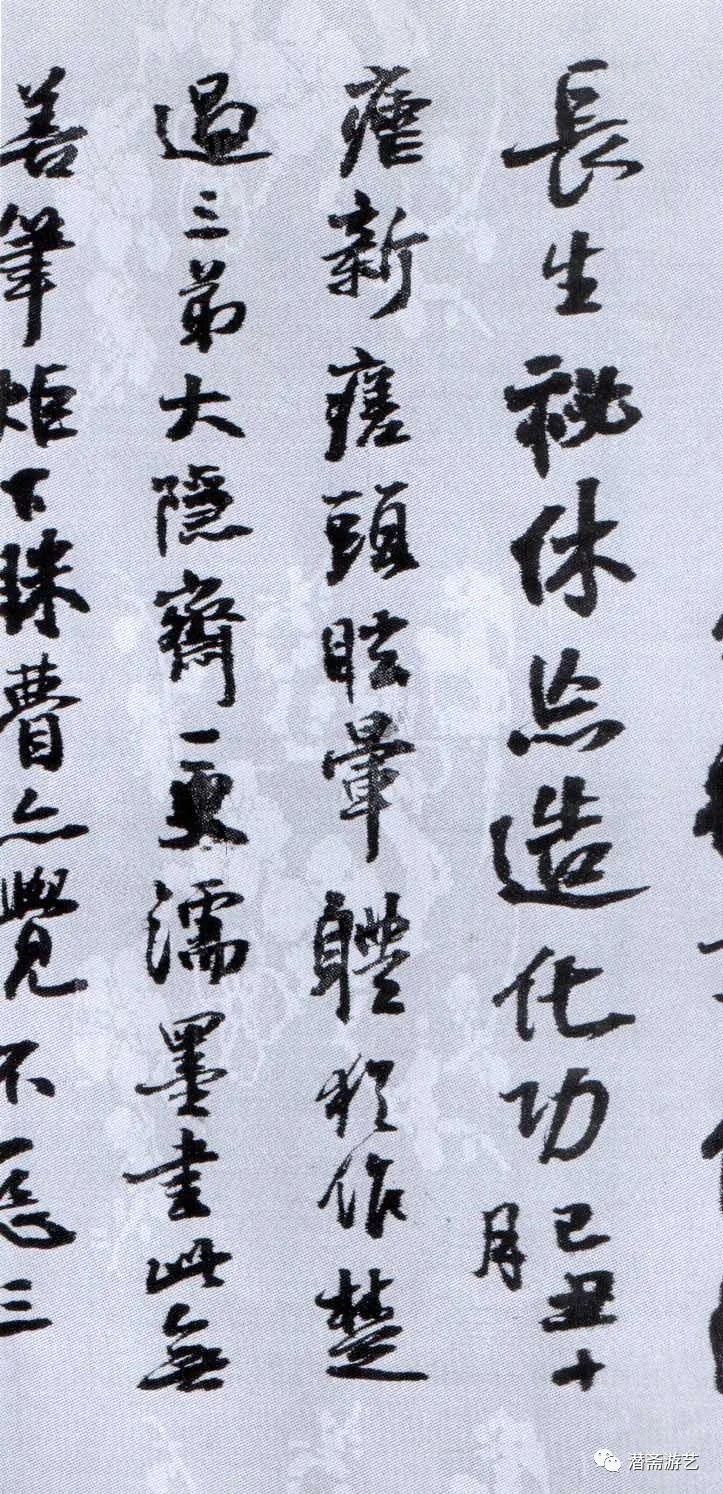 長生祕休点造化功
己丑十
月
瘧新瘥頭眩暈體犹作楚
過三弟大隱齋一更濡墨書此無
善筆炬下殊亦覺不惡三
潜斋游艺